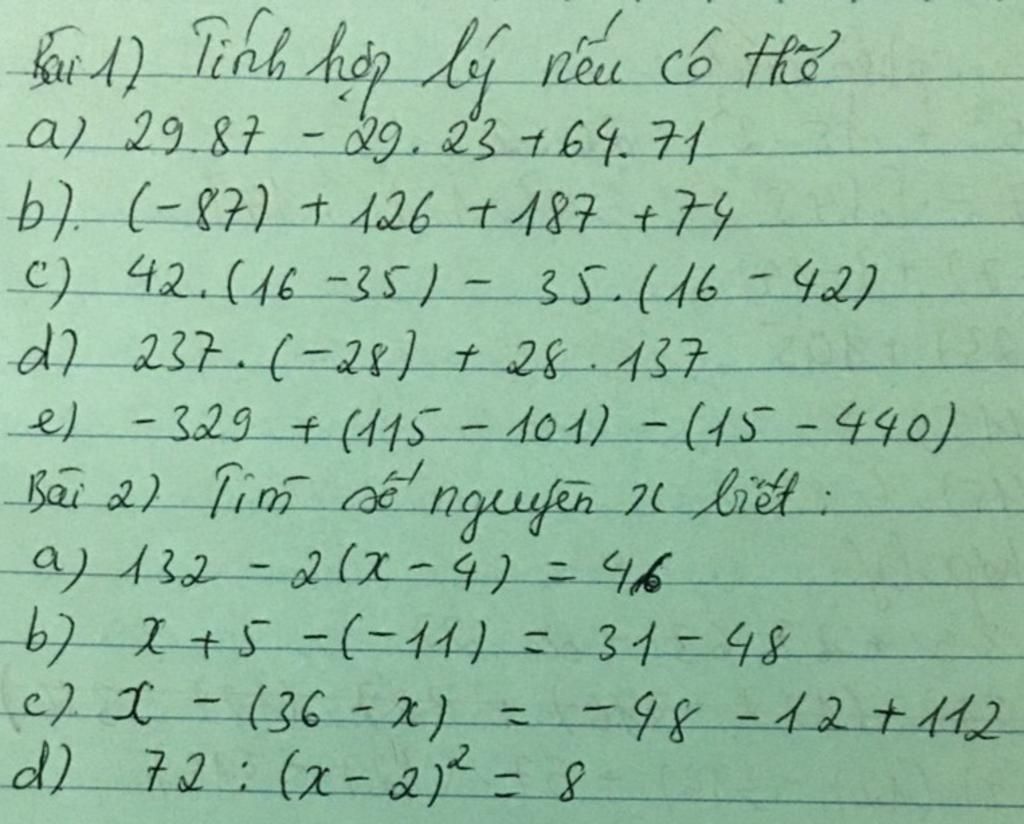 Bài 1) Tính hợp lý nếu có thể
a) 29.87 - 29.23 + 64.71
b). (-87) + 126 + 187 + 74
c) 42.(16 - 35) - 35.(16 - 42)
d) 237.(-28) + 28.137
e) -329 + (115 - 101) - (15 - 440)
Bài 2) Tìm số nguyên x biết:
a) 132 - 2(x - 4) = 46
b) x + 5 - (-11) = 31 - 48
c). x - (36 - x) = -98 - 12 + 112
d) 72 : (x - 2)² = 8